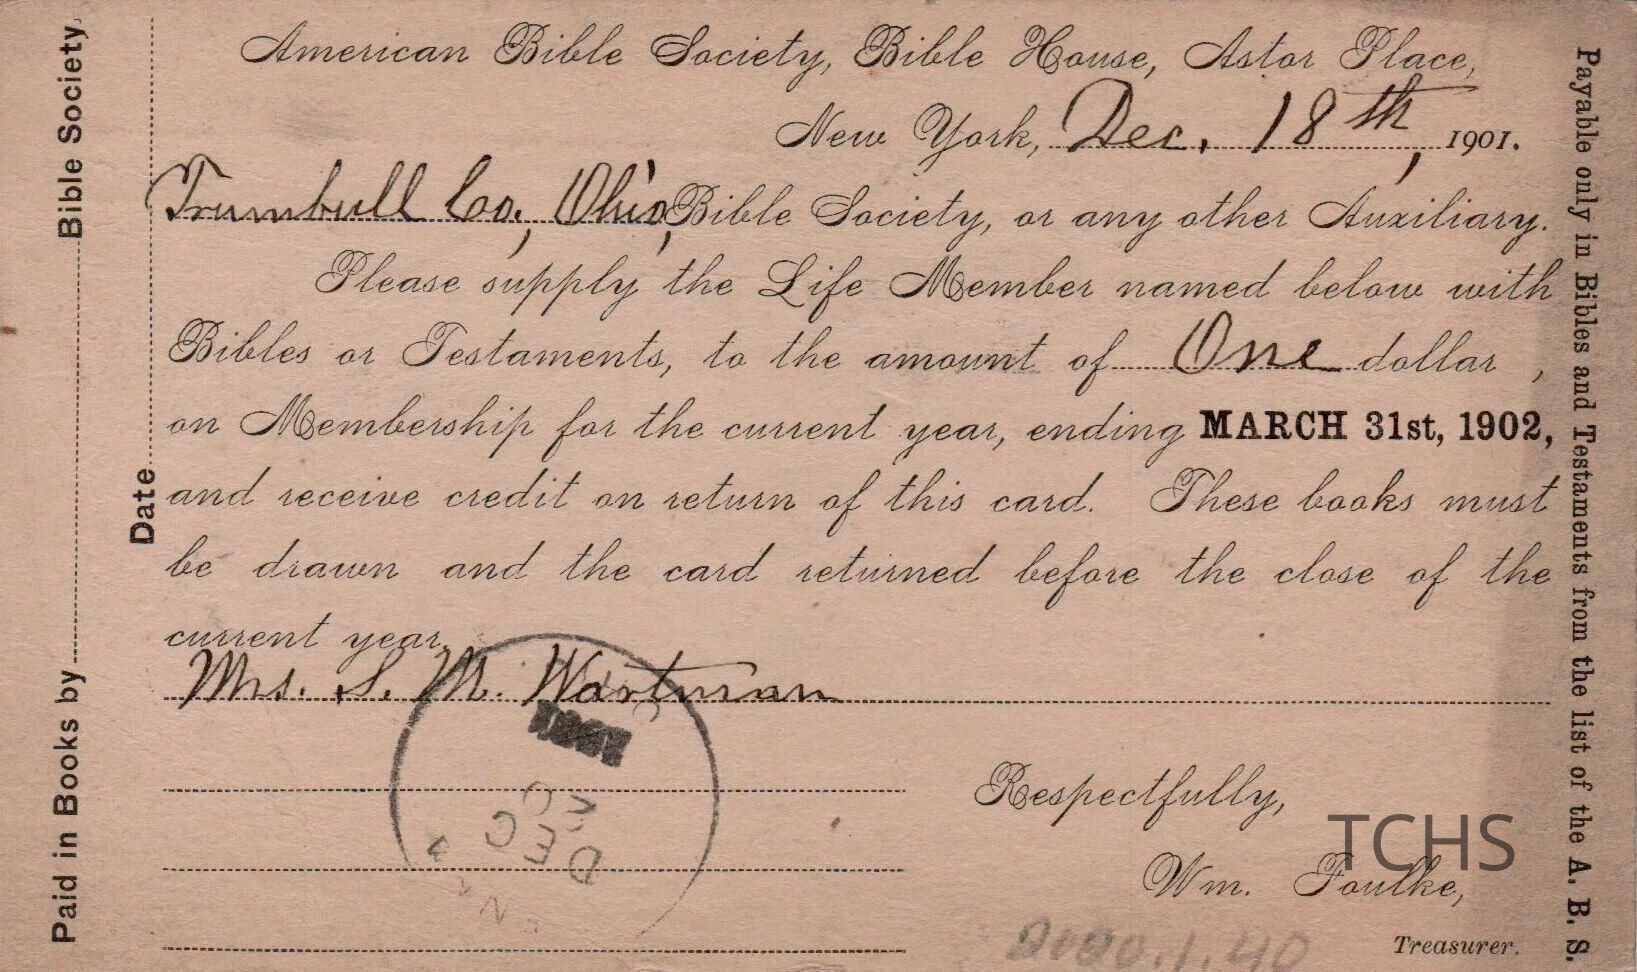 American Bible Society, Bible House, Astor Place,
New York, Dec. 18th, 1901.
Trumbull Co., Ohio, Bible Society, or any other Auxiliary.
Please supply the Life Member named below with
Bibles or Testaments, to the amount of One dollar ,
on Membership for the current year, ending MARCH 31st, 1902,
and receive credit on return of this card. These books must
be drawn and the card returned before the close of the
current year.
Mrs. S. M. Wartman
Respectfully,
Wm. Foulke,
Treasurer.
Paid in Books by Bible Society,
Date
Payable only in Bibles and Testaments from the list of the A. B. S.
DEC
TCHS
2020.1.40